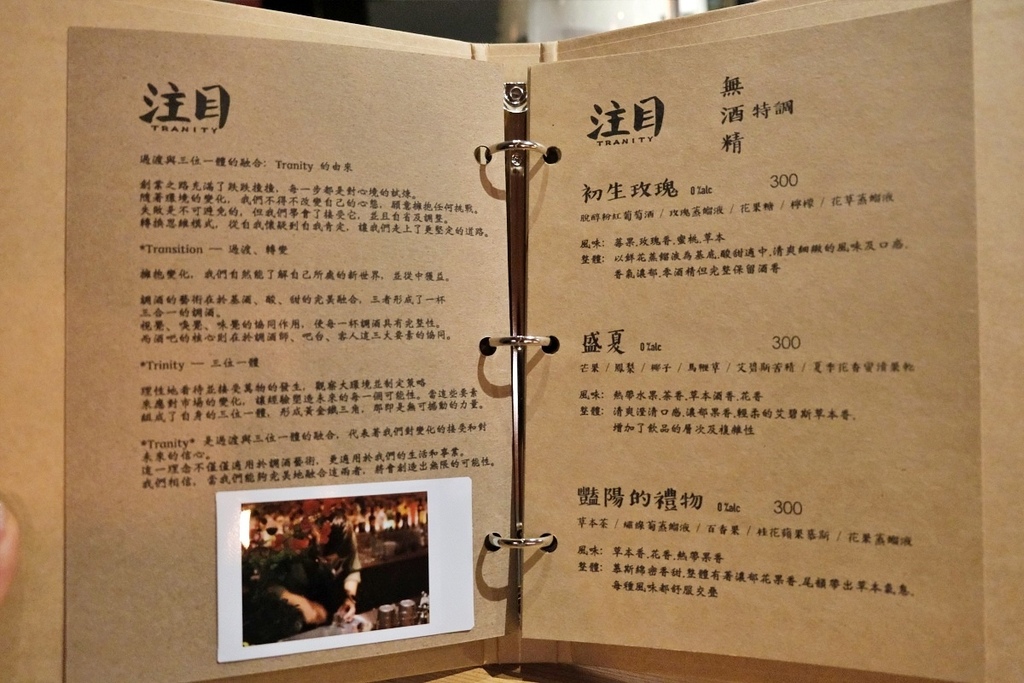 注目
TRANITY
過渡與三位一體的融合: Tranity 的由來
創業之路充滿了跌跌撞撞，每一步都是對心境的試煉。
隨著環境的變化，我們不得不改變自己的心態，願意擁抱任何挑戰。
失敗是不可避免的，但我們學會了接受它，並且自省及調整。
轉換思維模式，從自我懷疑到自我肯定，讓我們走上了更堅定的道路。
*Transition — 過渡、轉變
擁抱變化，我們自然能了解自己所處的新世界，並從中獲益。
調酒的藝術在於基酒、酸、甜的完美融合，三者形成了一杯
三合一的調酒。
視覺、嗅覺、味覺的協同作用，使每一杯調酒具有完整性。
而酒吧的核心則在於調酒師、吧台、客人這三大要素的協同。
*Trinity — 三位一體
理性地看待並接受萬物的發生，觀察大環境並制定策略
來應對市場的變化，讓經驗塑造未來的每一個可能性。當這些要素
組成了自身的三位一體，形成黃金鐵三角，那即是無可撼動的力量。
*Tranity* 是過渡與三位一體的融合，代表著我們對變化的接受和對
未來的信心。
這一理念不僅僅適用於調酒藝術，更適用於我們的生活和事業。
我們相信，當我們能夠完美地融合這兩者，將會創造出無限的可能性。
注目
TRANITY
無酒精 特調
初生玫瑰 0%alc 300
脫醇粉紅葡萄酒 / 玫瑰蒸餾液 / 花果糖 / 檸檬 / 花草蒸餾液
風味: 莓果.玫瑰香.蜜桃.草本
整體: 以鮮花蒸餾液為基底.酸甜適中.清爽細緻的風味及口感.
香氣濃郁.零酒精但完整保留酒香
盛夏 0%alc 300
芒果 / 鳳梨 / 椰子 / 馬鞭草 / 艾碧斯苦精 / 夏季花香蜜漬果乾
風味: 熱帶水果.茶香.草本酒香.花香
整體: 清爽澄清口感.濃郁果香.輕柔的艾碧斯草本香.
增加了飲品的層次及複雜性
豔陽的禮物 0%alc 300
草本茶 / 蝴蝶蘭蒸餾液 / 百香果 / 桂花蘋果慕斯 / 花果蒸餾液
風味: 草本香.花香.熱帶果香
整體: 慕斯綿密香甜.整體有著濃郁花果香.尾韻帶出草本氣息.
每種風味都舒服交疊